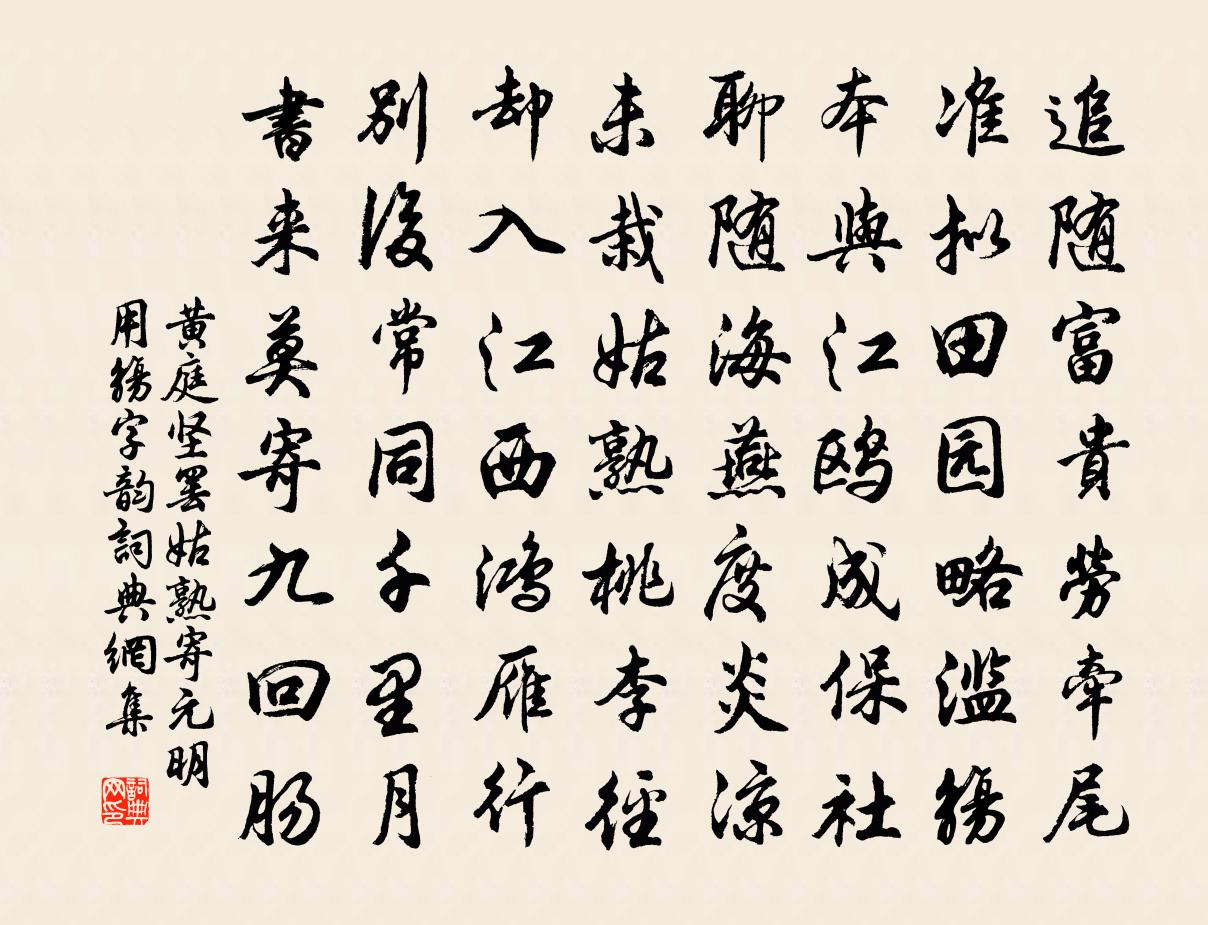 追随富貴勞牵尾
准拟田园略濫觴
本與江鸥成保社
聊随海燕度炎凉
未栽姑熟桃李徑
却入江西鸿雁行
别後常同千里月
書来莫寄九回肠
黄庭坚罢姑熟寄元明
用觴字韵詞典網集
詞典
网印